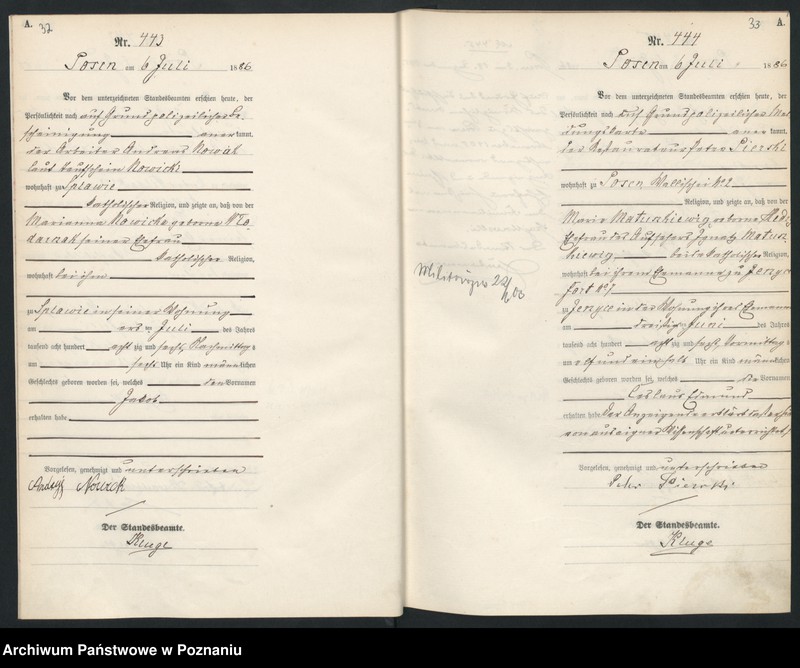 A.
37
Nr. 443
Posen am 6 Juli 1886
Vor dem unterzeichneten Standesbeamten erschien heute, der
Persönlichkeit nach auf Grund polizeilicher Be-
scheinigung anerkannt,
der Arbeiter Andreas Nowak
laut Taufschein Nowicki
wohnhaft zu Splawie
katholischer Religion, und zeigte an, daß von der
Marianna Nowicka geborne
seiner Ehefrau
katholischer Religion,
wohnhaft bei ihm
zu Splawie in seiner Wohnung
am ersten Juli des Jahres
tausend acht hundert achtzig und sechs, Nachmittags
um sechs Uhr ein Kind männlichen
Geschlechts geboren worden sei, welches den Vornamen
Jakob
erhalten habe
Vorgelesen, genehmigt und unterschrieben
Andrzej Nowak
Der Standesbeamte.
Kluge
33
A.
Nr. 444
Posen am 6 Juli 1886
Vor dem unterzeichneten Standesbeamten erschien heute, der
Persönlichkeit nach auf Grund polizeilicher Mel-
dungskarte anerkannt,
der Restaurateur Peter Pierski
wohnhaft zu Posen Wallischei No 2
Religion, und zeigte an, daß von der
Maria Matuszkiewicz geborne
Ehefrau des Aufsehers Ignatz Matusz-
kiewicz beide katholischer Religion,
wohnhaft bei ihrem Ehemanne zu Jerzyce
Fort
zu Jerzyce in der Wohnung ihres Ehemannes
am dreißigsten Juni des Jahres
tausend acht hundert achtzig und sechs, Vormittags
um elf und ein halb Uhr ein Kind männlichen
Geschlechts geboren worden sei, welches die Vornamen
Ceslaus Edmund
erhalten habe. Der Anzeigende erklärt daß er hier-
von aus eigner Wissenschaft unterrichtet sei
Vorgelesen, genehmigt und unterschrieben
Peter Pierski
Der Standesbeamte.
Kluge
Archiwum Państwowe w Poznaniu